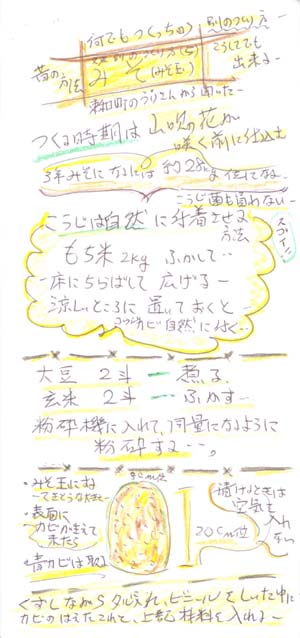 何でもつくっちゃう
別のつくり方
昔の方法
みそ(みそ玉)
こうしてでも
出来る
つくる時期は山吹の花が
咲く前に仕込む
3年みそになるには 約
こうじ菌も買わない
スゴイ
こうじは自然に付着させる
方法
もち米2kg ふかして
床にちらばして 広げる
涼しいところに 置いておくと
自然に付く
大豆 2斗 煮る
玄米 2斗 ふかす
粉砕機に入れて、同量になるように
粉砕する
・みそ玉にする
・表面に
カビが生えて
来たら
・青カビは取る
20cm位
漬けるときは
空気を
入れない
くずしながらタル入れ、ビニールをしいた中に
カビのはえたこれと、上記材料を入れる